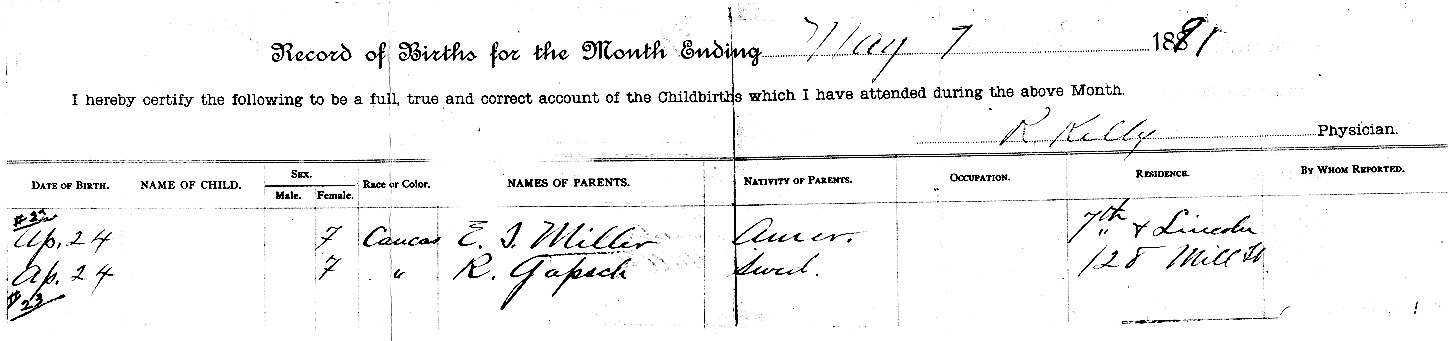 Record of Births for the Month Ending May 7 1891
I hereby certify the following to be a full, true and correct account of the Childbirths which I have attended during the above Month.
R Kelly Physician.
DATE OF BIRTH. NAME OF CHILD. SEX. Male. Female. Race or Color. NAMES OF PARENTS. NATIVITY OF PARENTS. OCCUPATION. RESIDENCE. BY WHOM REPORTED.
#22
Ap. 24 7 Caucas E. J. Miller Amer. 7th & Lincoln
Ap. 24 7 " R. Gapsch Swed. 128 Mill St
#23